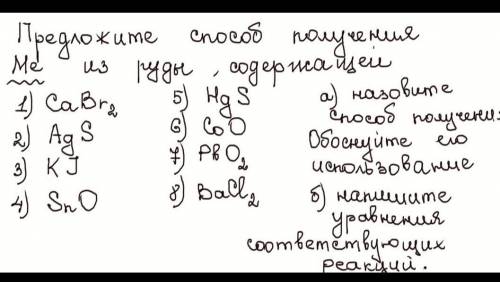 Предложите способ получения
Ме из руды, содержащей
1) CaBr2
2) AgS
3) KJ
4) SnO
5) HgS
6) CoO
7) PbO2
8) BaCl2
а) назовите
способ получения
Обоснуйте его
использование
б) напишите
уравнения
соответствующих
реакций.